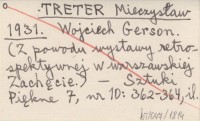 TRETER Mieczysław
1931. Wojciech Gerson.
(Z powodu wystawy retro-
spektywnej w warszawskiej
Zachęcie.) — Sztuki
Piękne 7, nr 10: 362-364, il.